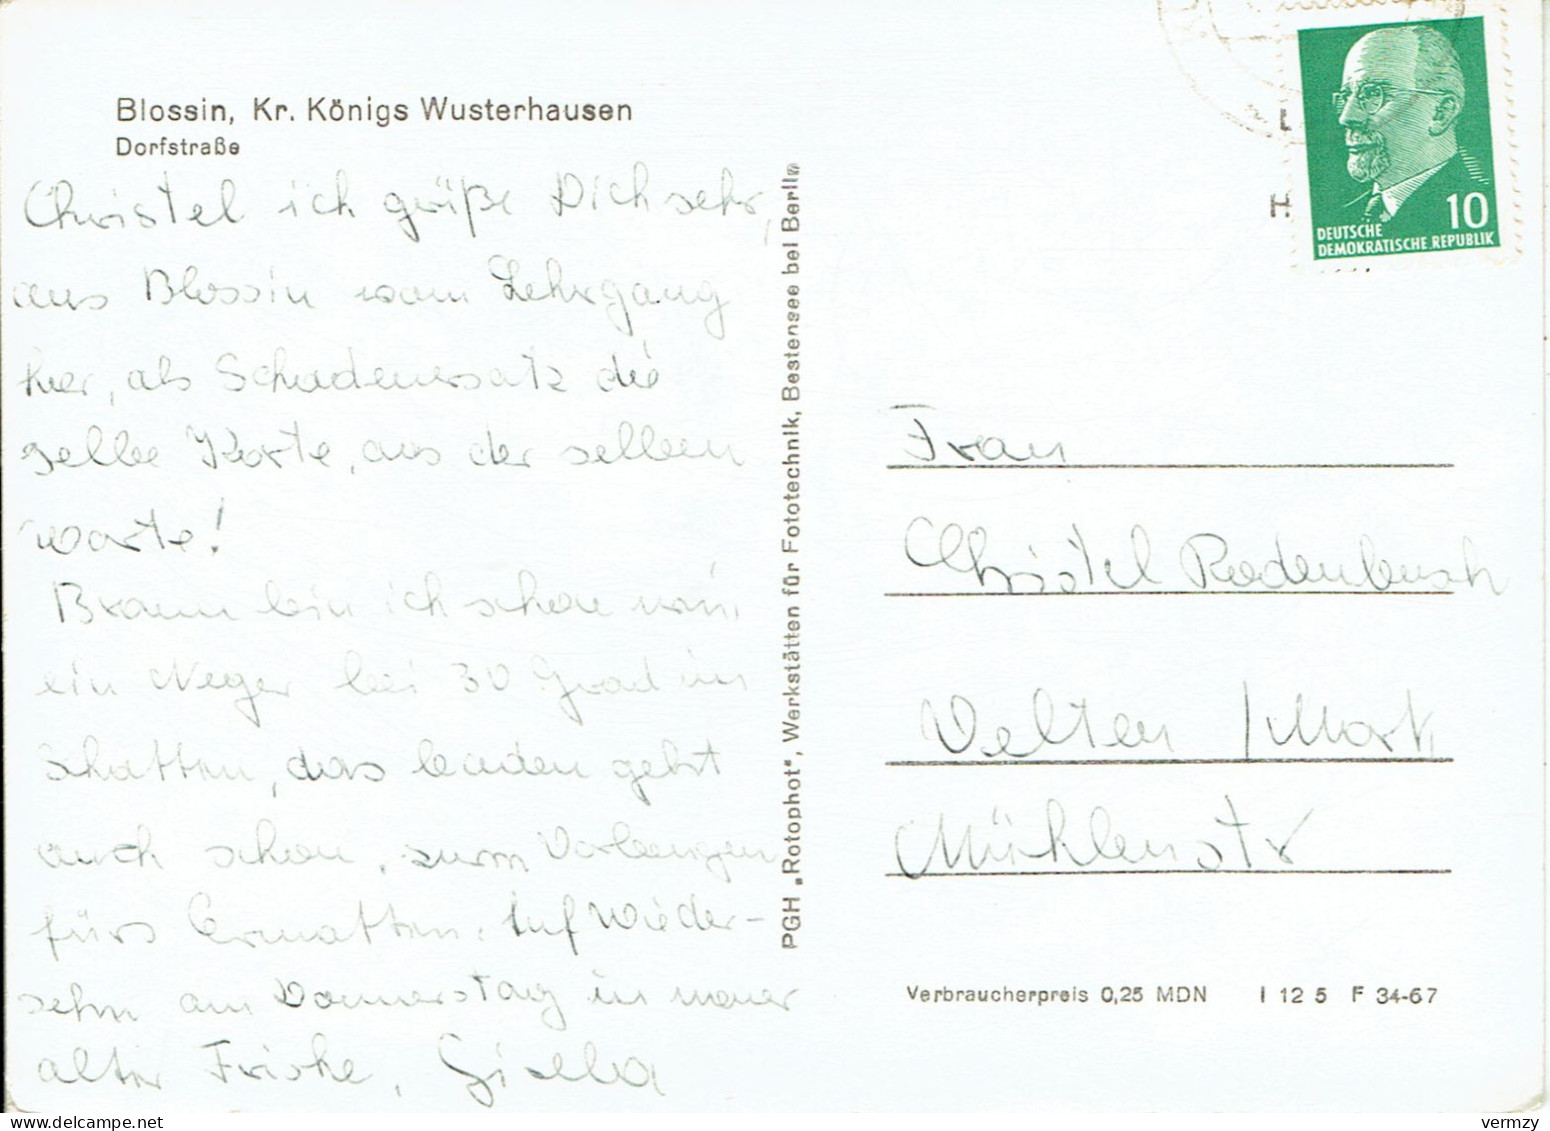 Blossin, Kr. Königs Wusterhausen
Dorfstraße
Christel ich grüße Dich sehr,
aus Blossin vom Lehrgang
her, als Schadenersatz die
gelbe Karte, aus der selben
warte!
Braun bin ich schon wie
ein Neger bei 30 Grad im
Schatten, das baden geht
auch schon, zum Vorbeugen
fürs Ermatten. Auf Wieder-
sehn am Donnerstag in neuer
alter Frische, Gisela
PGH „Rotophot", Werkstätten für Fototechnik, Bestensee bei Berlin
10
DEUTSCHE
DEMOKRATISCHE REPUBLIK
Frau
Christel Rodenbusch
Velten / Mark
Mühlenstr
Verbraucherpreis 0,25 MDN I 12 5 F 34-67
vermzy